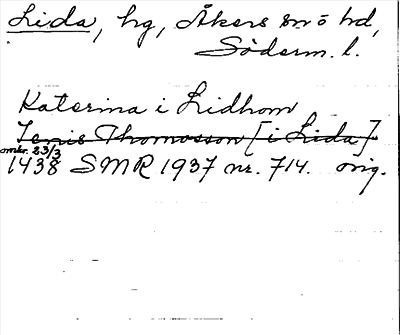 Lida, hg, Åkers sn o hd,
Söderm. l.
Katerina i Lidhom
Jenis Thomasson [i Lida].
omkr. 23/3
1438 SMR 1937 nr. 714. orig.